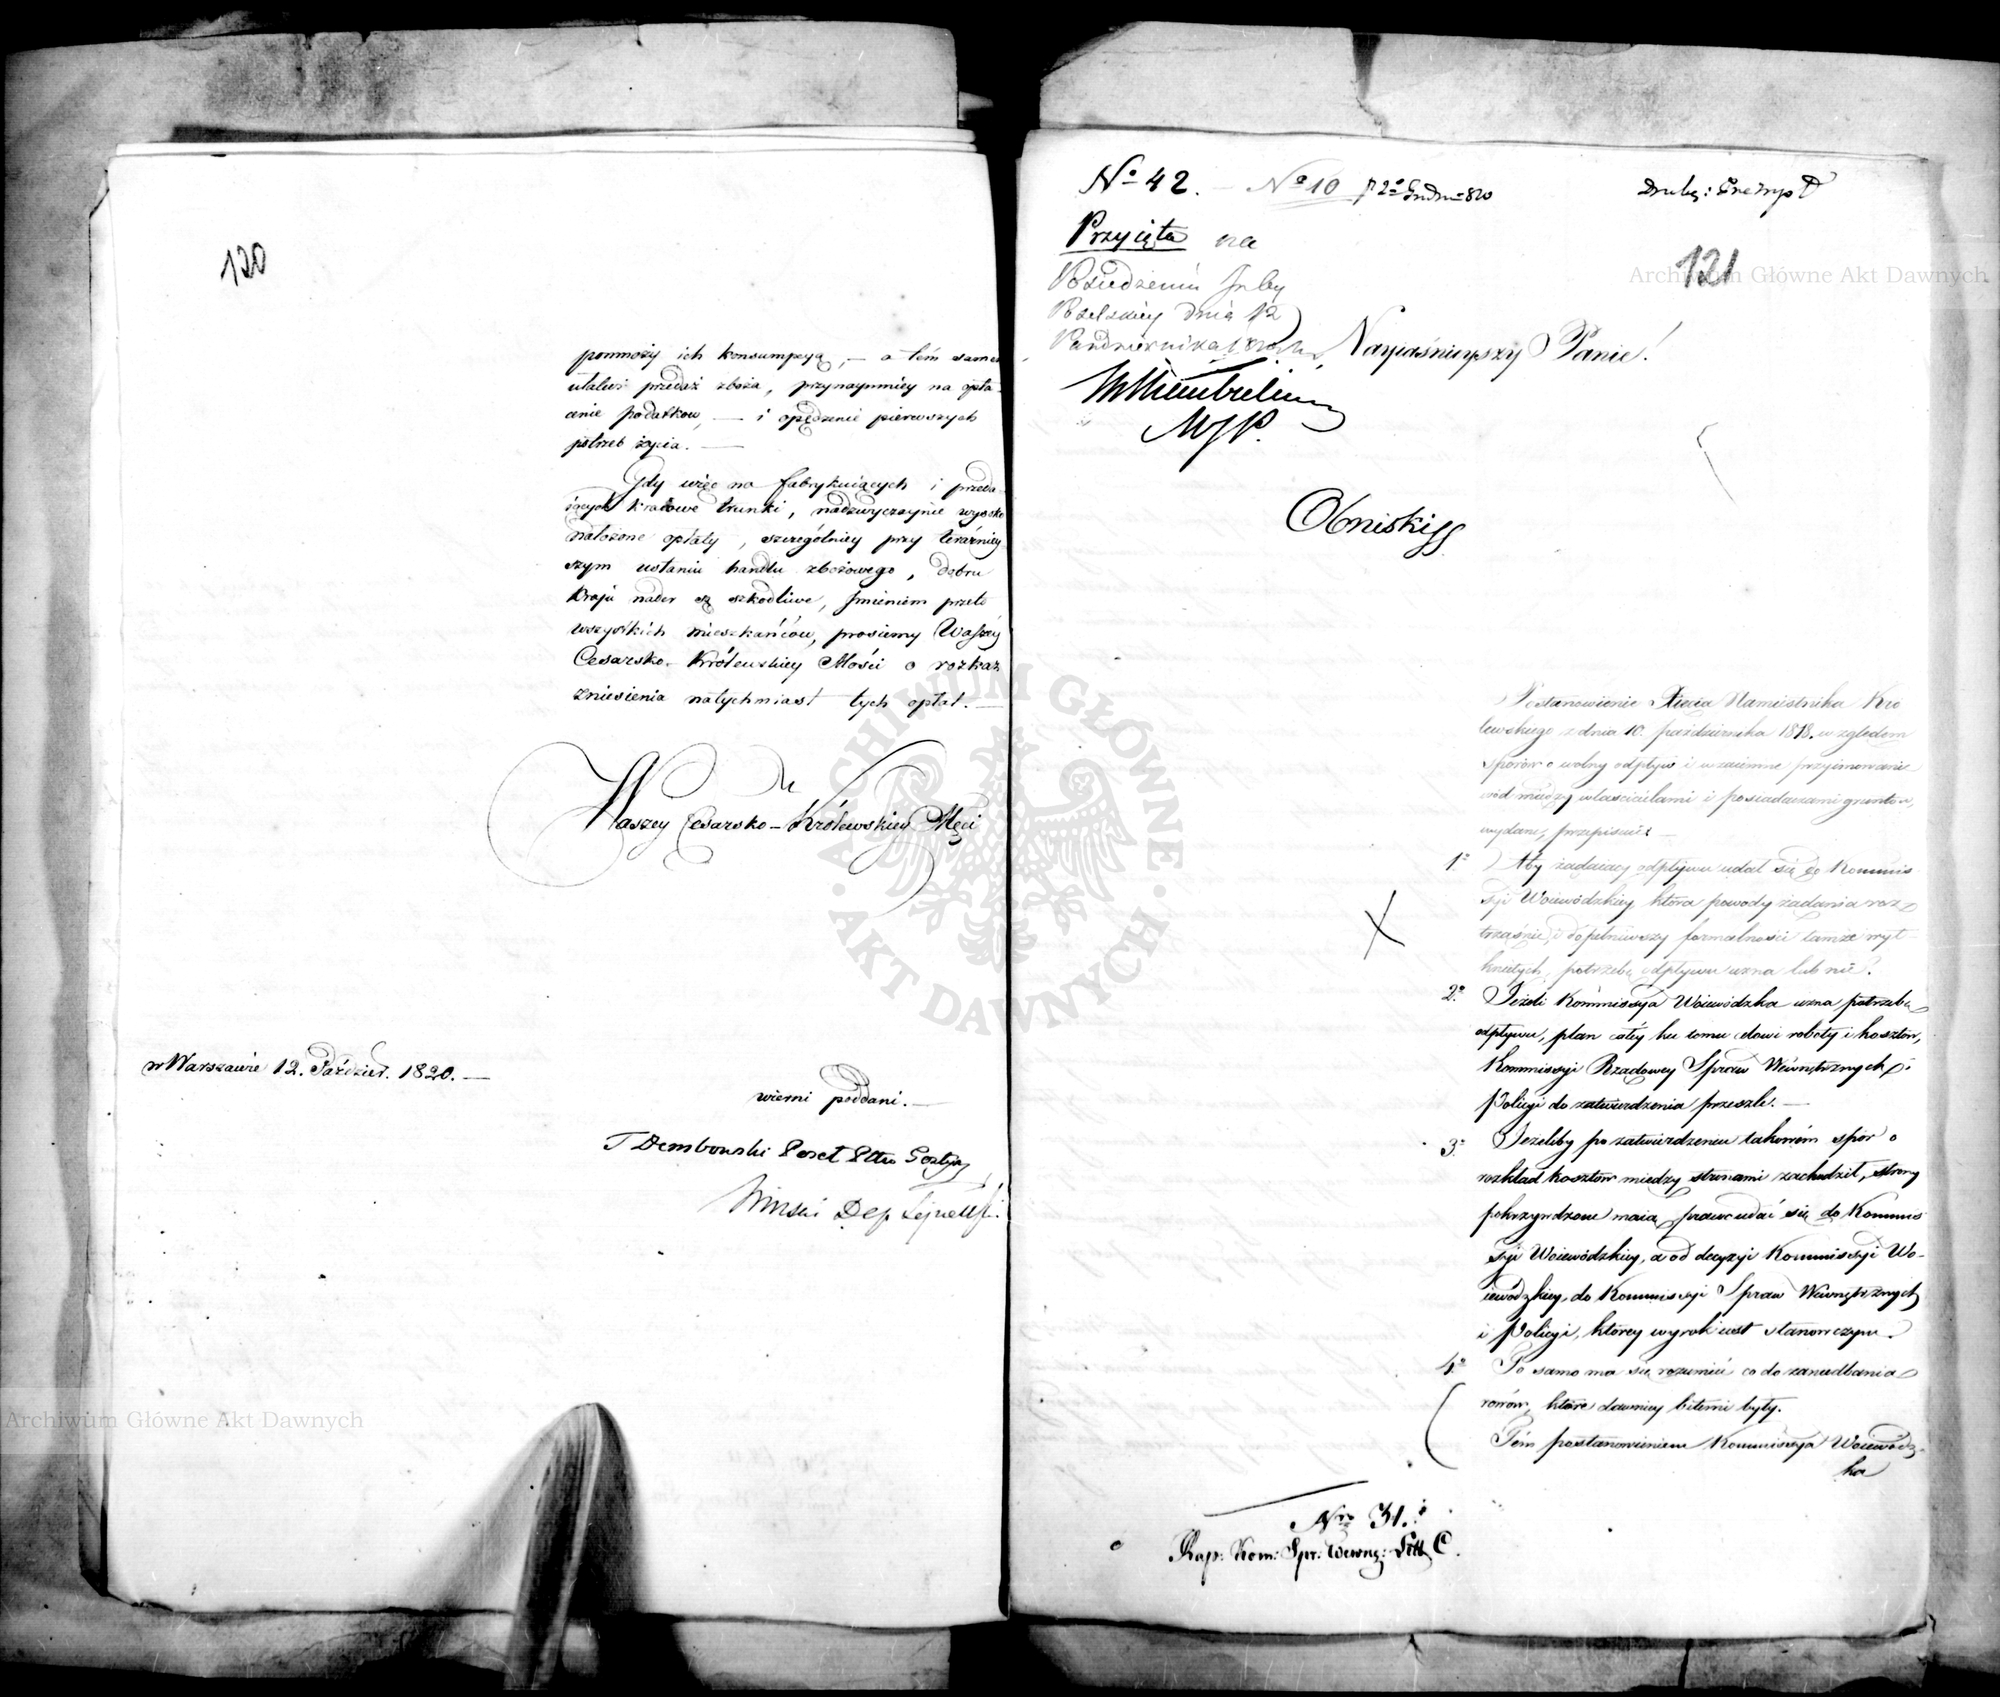 120
pomnoży ich konsumpcyą, — a tém samem
ułatwi przedaż zboża, przynaymniey na opła-
cenie podatkow, — i opędzenie pierwszych
potrzeb życia. —
Gdy więc na fabrykuiących i przeda-
iących kraiowe trunki, nadzwyczaynie wysoko
nałożone opłaty, szczególniey przy teraźniey-
szym ustaniu handlu zbożowego, dobru
Kraju nader są szkodliwe, Jmieniem przeto
wszystkich mieszkańców, prosiemy Waszey
Cesarsko-Królewskiey Mości o rozkaz
zniesienia natychmiast tych opłat. —
Waszey Cesarsko-Królewskiey Mści
w Warszawie 12. Paździer. 1820. —
wierni poddani. —
T Dembowski Poseł Pttu
Dep
No 42. — No 10
Przyięta na
Posiedzeniu Jzby
Poselskiey dnia 12
Października 1820
MJP.
121
Nayiaśnieyszy Panie!
Postanowienie Xięcia Namiestnika Kró-
lewskiego z dnia 10. października 1818. względem
sporów o wolny odpływ i wzaiemne przyimowanie
wód między właścicielami i posiadaczami gruntów,
wydane, przepisuie —
1o Aby żądaiący odpływu udał się do Kommis-
syi Woiewódzkiey, która powody żądania roz-
trząśnie, i dopełniwszy formalności tamże wyt-
kniętych, potrzebę odpływu uzna lub nie.
2o Jeżeli Kommissya Woiewódzka uzna potrzebę
odpływu, plan całéy ku temu celowi roboty i kosztów,
Kommissyi Rządowey Spraw Wewnętrznych i
Policyi do zatwierdzenia prześle. —
3o Jeżeliby po zatwierdzeniu takowém spór o
rozkład kosztów między stronami zachodził, strony
pokrzywdzone maią prawo udać się do Kommis-
syi Woiewódzkiey, a od decyzyi Kommissyi Wo-
iewódzkiey, do Kommissyi Spraw Wewnętrznych
i Policyi, którey wyrok iest stanowczym.
4o To samo ma się rozumieć co do zaniedbania
rowów, które dawniey bitemi były.
Tém postanowieniem Kommissya Woiewódz-
ka
Nro 31.
Rap: Kom: Spr: Wewnę: Litt C.
Archiwum Główne Akt Dawnych
Archiwum Główne Akt Dawnych
ARCHIWUM GŁÓWNE
· AKT DAWNYCH ·